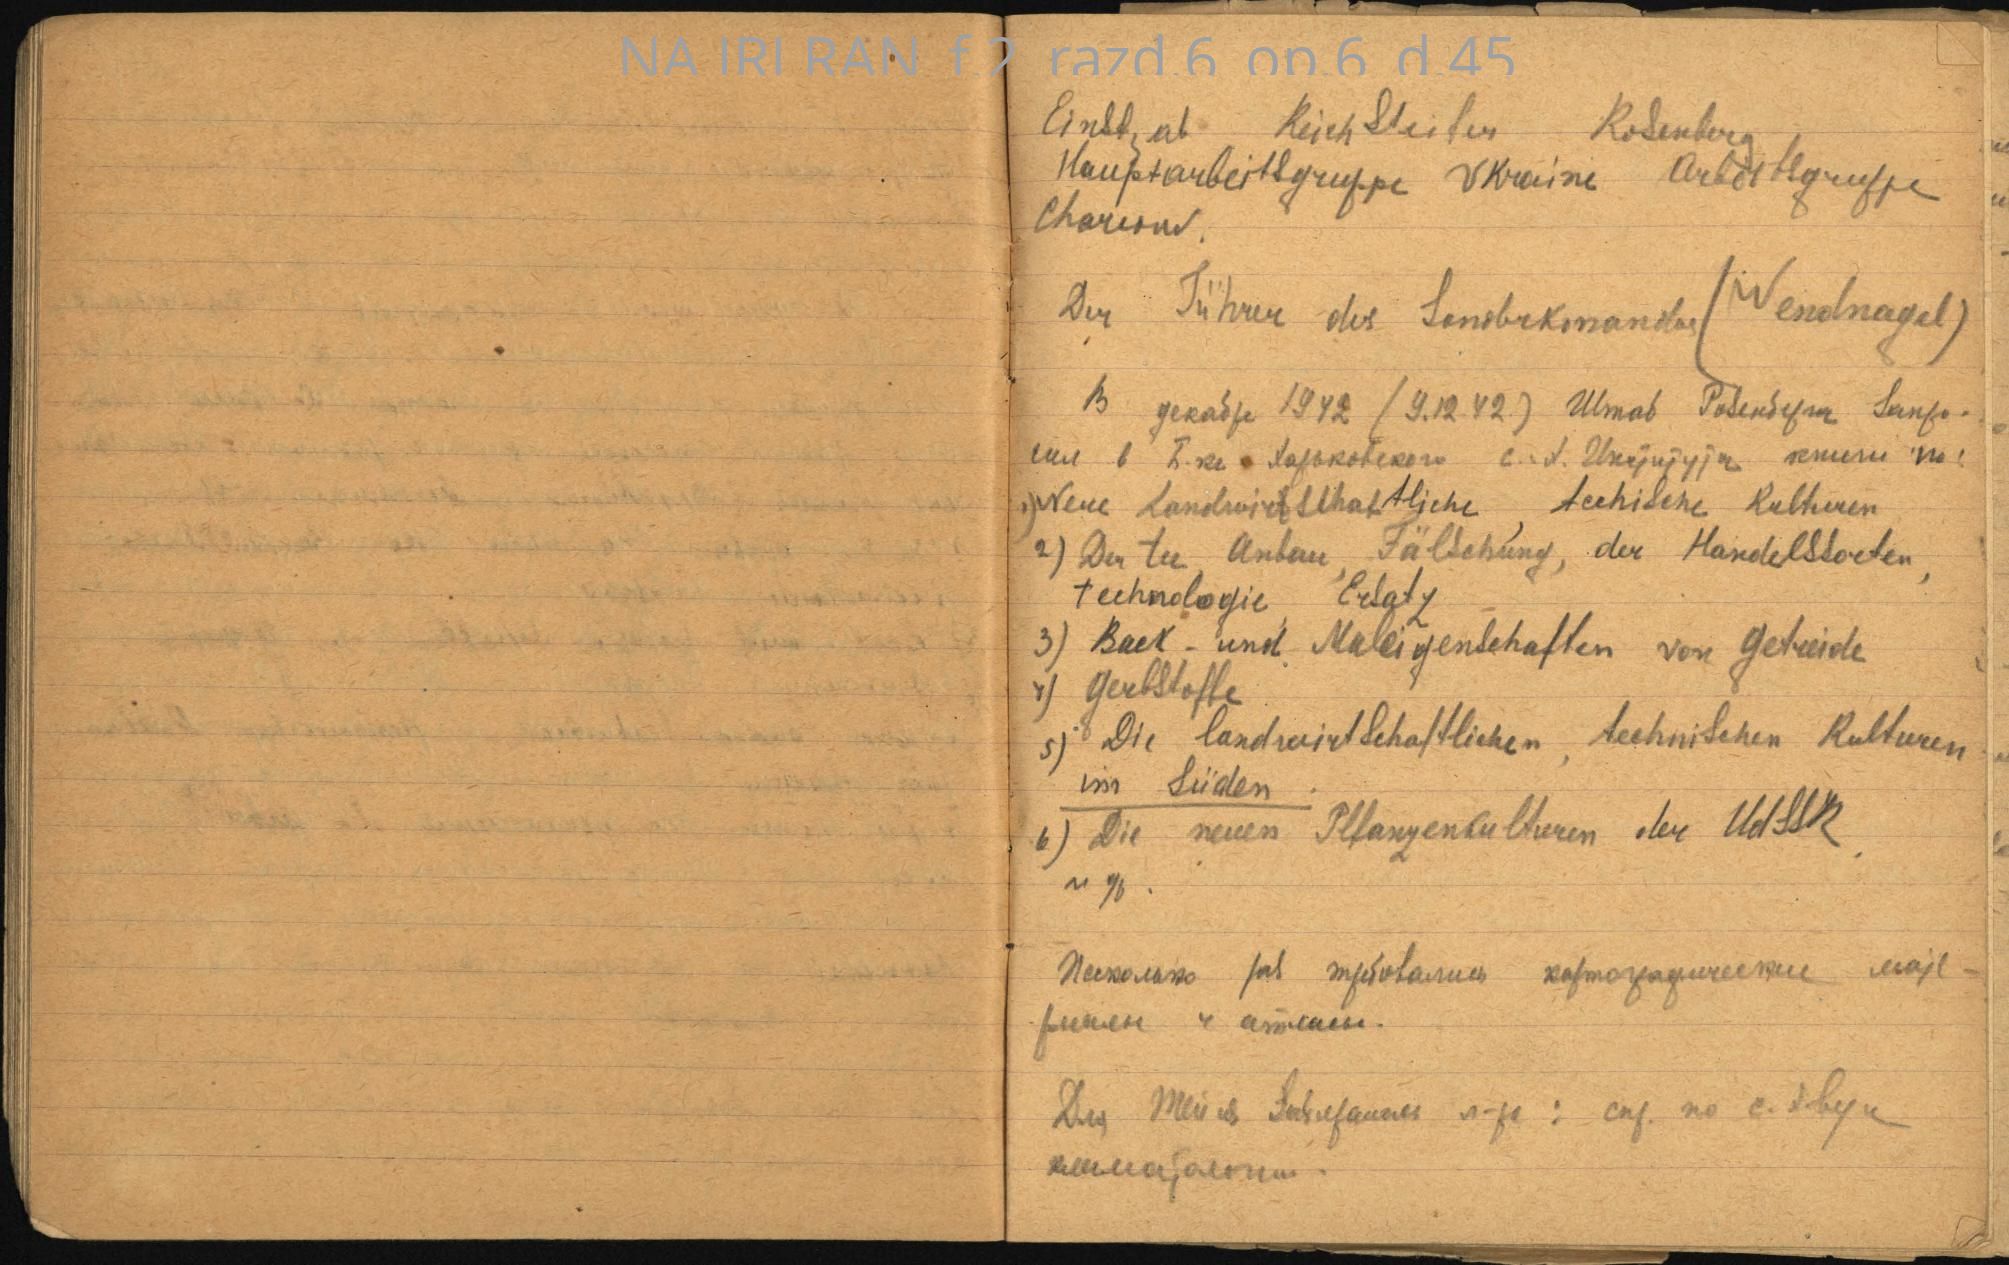 NA IRI RAN f.2 razd.6 op.6 d.45
Einstzab Reichsleiter Rosenberg
Hauptarbeitsgruppe Ukraine Arbeitsgruppe
Charkow.
Der Führer des Sonderkomandos (Wendnagel)
В декабре 1942 (9.12.42) Штаб Розенберга запро-
сил в Б-ке Харьковского с.-х. Института книги по:
1) Neue Landwirtschaftliche, techische Kulturen
2) Der tee Anbau, Fälschung, der Handelssorten,
technologie, Ersatz
3) Back- und Maleigenschaften von Getreide
4) Gerbstoffe
5) Die landwirtschaftlichen, technischen Kulturen
im Süden.
6) Die neuen Pflanzenkulturen der UdSSR
и др.
Несколько раз требовались картографические мате-
риалы и атласы.
Для забиралась л-ра: спр. по с. х-ву и
климатологии.